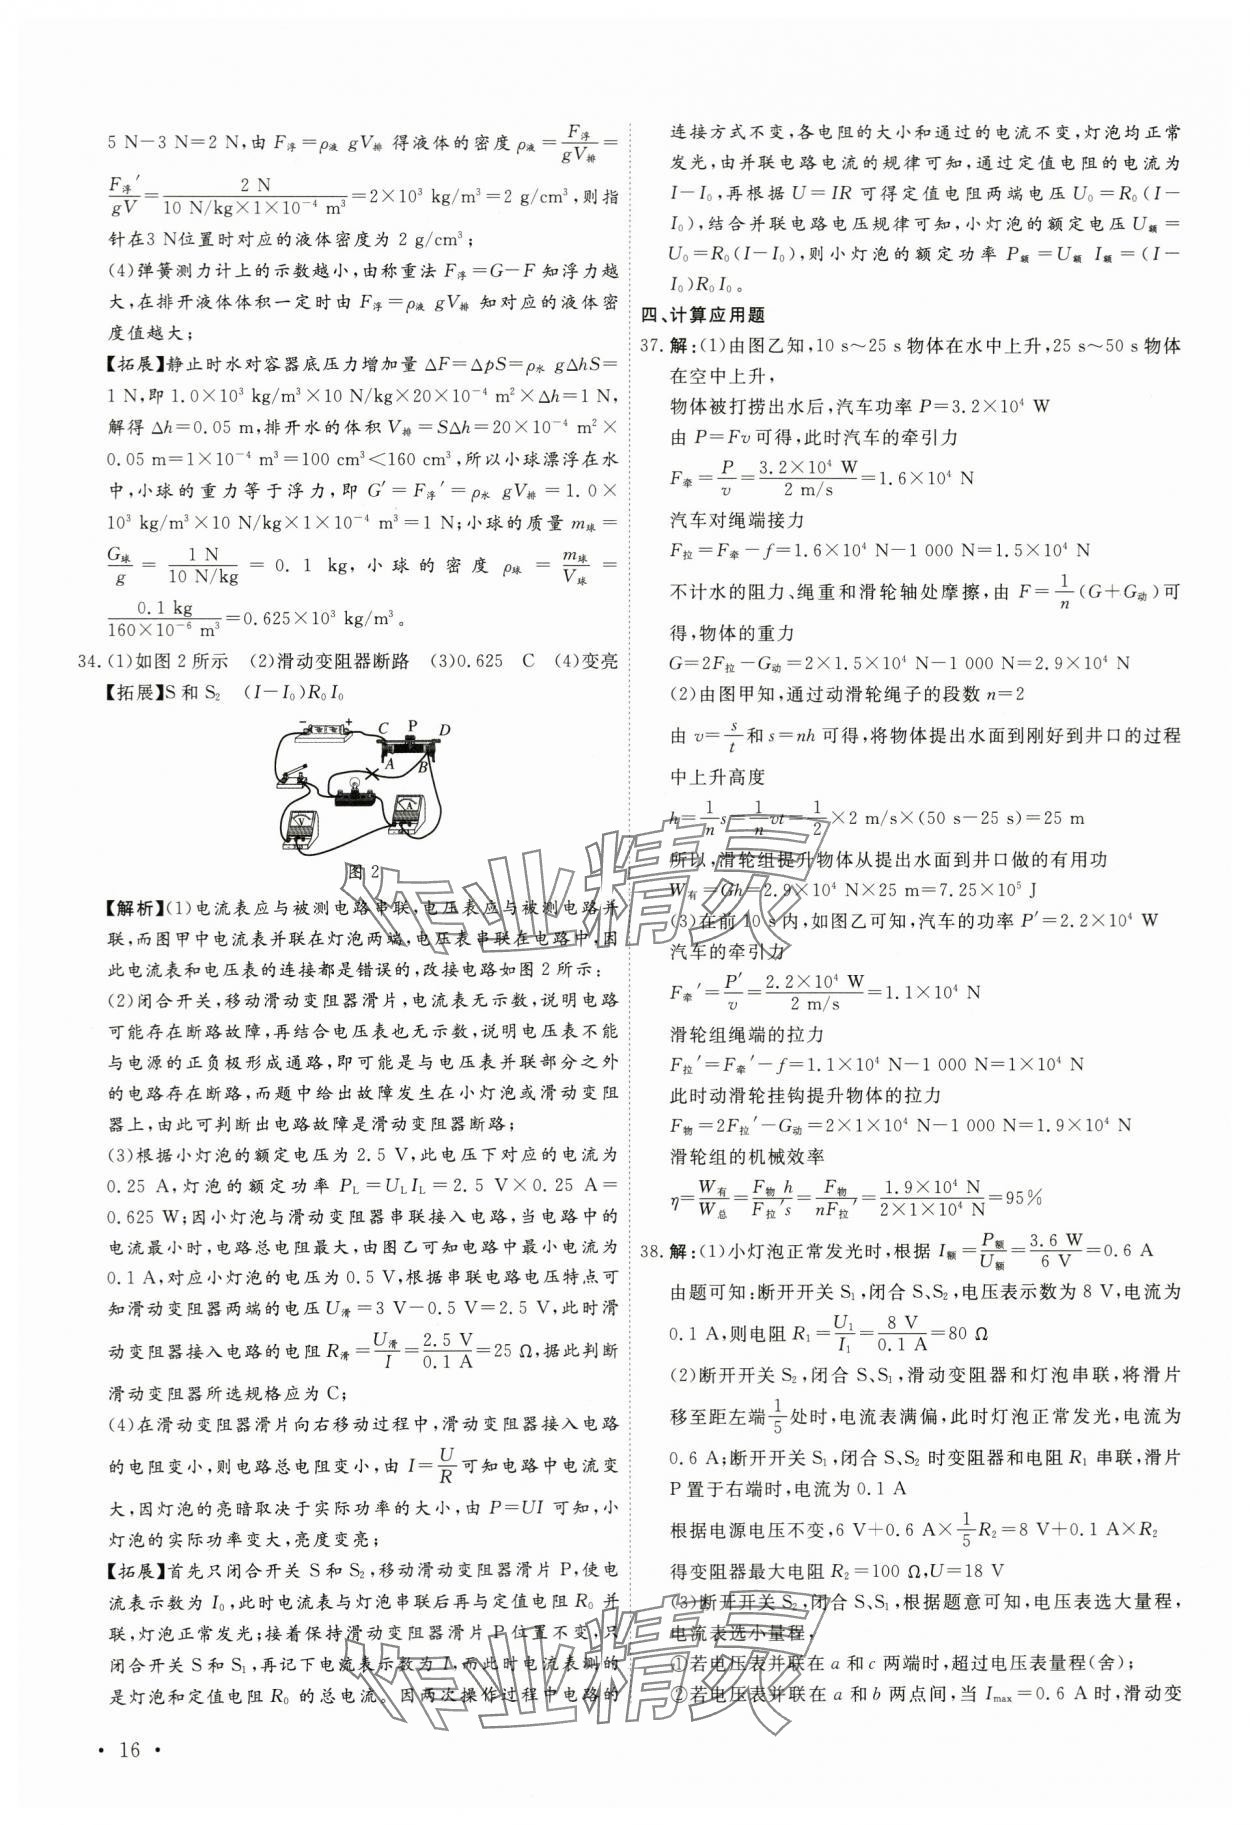 5 N−3 N=2 N,由 F浮=ρ液 gV排 得液体的密度 ρ液=F浮/gV排=
F浮′/gV=2 N/(10 N/kg×1×10⁻⁴ m³)=2×10³ kg/m³=2 g/cm³,则指
针在3 N位置时对应的液体密度为 2 g/cm³;
(4)弹簧测力计上的示数越小,由称重法 F浮=G−F 知浮力越
大,在排开液体体积一定时由 F浮=ρ液 gV排 知对应的液体密
度值越大;
【拓展】静止时水对容器底压力增加量 ΔF=ΔpS=ρ水 gΔhS=
1 N,即 1.0×10³ kg/m³×10 N/kg×20×10⁻⁴ m²×Δh=1 N,
解得 Δh=0.05 m,排开水的体积 V排=SΔh=20×10⁻⁴ m²×
0.05 m=1×10⁻⁴ m³=100 cm³<160 cm³,所以小球漂浮在水
中,小球的重力等于浮力,即 G′=F浮′=ρ水 gV排=1.0×
10³ kg/m³×10 N/kg×1×10⁻⁴ m³=1 N;小球的质量 m球=
G球/g=1 N/(10 N/kg)=0.1 kg,小球的密度 ρ球=m球/V球=
0.1 kg/(160×10⁻⁶ m³)=0.625×10³ kg/m³。
34.(1)如图 2 所示 (2)滑动变阻器断路 (3)0.625 C (4)变亮
【拓展】S 和 S₂ (I−I₀)R₀I₀
− + C P D
A B
V A
图 2
【解析】(1)电流表应与被测电路串联,电压表应与被测电路并
联,而图甲中电流表并联在灯泡两端,电压表串联在电路中,因
此电流表和电压表的连接都是错误的,改接电路如图 2 所示;
(2)闭合开关,移动滑动变阻器滑片,电流表无示数,说明电路
可能存在断路故障,再结合电压表也无示数,说明电压表不能
与电源的正负极形成通路,即可能是与电压表并联部分之外
的电路存在断路,而题中给出故障发生在小灯泡或滑动变阻
器上,由此可判断出电路故障是滑动变阻器断路;
(3)根据小灯泡的额定电压为 2.5 V,此电压下对应的电流为
0.25 A,灯泡的额定功率 P_L=U_L I_L=2.5 V×0.25 A=
0.625 W;因小灯泡与滑动变阻器串联接入电路,当电路中的
电流最小时,电路总电阻最大,由图乙可知电路中最小电流为
0.1 A,对应小灯泡的电压为 0.5 V,根据串联电路电压特点可
知滑动变阻器两端的电压U滑=3 V−0.5 V=2.5 V,此时滑
动变阻器接入电路的电阻 R滑=U滑/I=2.5 V/0.1 A=25 Ω,据此判断
滑动变阻器所选规格应为 C;
(4)在滑动变阻器滑片向右移动过程中,滑动变阻器接入电路
的电阻变小,则电路总电阻变小,由 I=U/R可知电路中电流变
大,因灯泡的亮暗取决于实际功率的大小,由 P=UI 可知,小
灯泡的实际功率变大,亮度变亮;
【拓展】首先只闭合开关 S 和 S₂,移动滑动变阻器滑片 P,使电
流表示数为 I₀,此时电流表与灯泡串联后再与定值电阻 R₀ 并
联,灯泡正常发光;接着保持滑动变阻器滑片 P 位置不变,只
闭合开关 S 和 S₁,再记下电流表示数为 I,而此时电流表测的
是灯泡和定值电阻 R₀ 的总电流。因两次操作过程中电路的
连接方式不变,各电阻的大小和通过的电流不变,灯泡均正常
发光,由并联电路电流的规律可知,通过定值电阻的电流为
I−I₀,再根据 U=IR 可得定值电阻两端电压 U₀=R₀(I−
I₀),结合并联电路电压规律可知,小灯泡的额定电压 U额=
U₀=R₀(I−I₀),则小灯泡的额定功率 P额=U额 I额=(I−
I₀)R₀I₀。
四、计算应用题
37.解:(1)由图乙知,10 s~25 s物体在水中上升,25 s~50 s物体
在空中上升,
物体被打捞出水后,汽车功率 P=3.2×10⁴ W
由 P=Fv可得,此时汽车的牵引力
F牵=P/v=3.2×10⁴ W/(2 m/s)=1.6×10⁴ N
汽车对绳端接力
F拉=F牵−f=1.6×10⁴ N−1 000 N=1.5×10⁴ N
不计水的阻力、绳重和滑轮轴处摩擦,由 F=1/n(G+G动)可
得,物体的重力
G=2F拉−G动=2×1.5×10⁴ N−1 000 N=2.9×10⁴ N
(2)由图甲知,通过动滑轮绳子的段数 n=2
由 v=s/t和s=nh 可得,将物体提出水面到刚好到井口的过程
中上升高度
h=1/n s=1/n vt=1/2×2 m/s×(50 s−25 s)=25 m
所以,滑轮组提升物体从提出水面到井口做的有用功
W有=Gh=2.9×10⁴ N×25 m=7.25×10⁵ J
(3)在前 10 s内,如图乙可知,汽车的功率 P′=2.2×10⁴ W
汽车的牵引力
F牵′=P′/v=2.2×10⁴ W/(2 m/s)=1.1×10⁴ N
滑轮组绳端的拉力
F拉′=F牵′−f=1.1×10⁴ N−1 000 N=1×10⁴ N
此时动滑轮挂钩提升物体的拉力
F物=2F拉′−G动=2×1×10⁴ N−1 000 N=1.9×10⁴ N
滑轮组的机械效率
η=W有/W总=F物h/F拉′s=F物/nF拉′=1.9×10⁴ N/(2×1×10⁴ N)=95%
38.解:(1)小灯泡正常发光时,根据 I额=P额/U额=3.6 W/6 V=0.6 A
由题可知:断开开关 S₁,闭合 S、S₂,电压表示数为 8 V,电流为
0.1 A,则电阻 R₁=U₁/I₁=8 V/0.1 A=80 Ω
(2)断开开关 S₂,闭合 S、S₁,滑动变阻器和灯泡串联,将滑片
移至距左端1/5处时,电流表满偏,此时灯泡正常发光,电流为
0.6 A;断开开关 S₁,闭合 S、S₂ 时变阻器和电阻 R₁ 串联,滑片
P 置于右端时,电流为 0.1 A
根据电源电压不变,6 V+0.6 A×1/5R₂=8 V+0.1 A×R₂
得变阻器最大电阻 R₂=100 Ω,U=18 V
(3)断开开关 S₂,闭合 S、S₁,根据题意可知,电压表选大量程,
电流表选小量程,
①若电压表并联在 a 和 c 两端时,超过电压表量程(舍);
②若电压表并联在 a 和 b 两点间,当 Imax=0.6 A 时,滑动变
· 16 ·
作业精灵
作业精灵